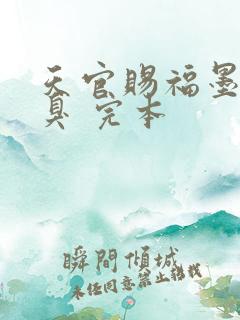 天官赐福墨
具 完本
瞬間傾城
未任同意禁止转载